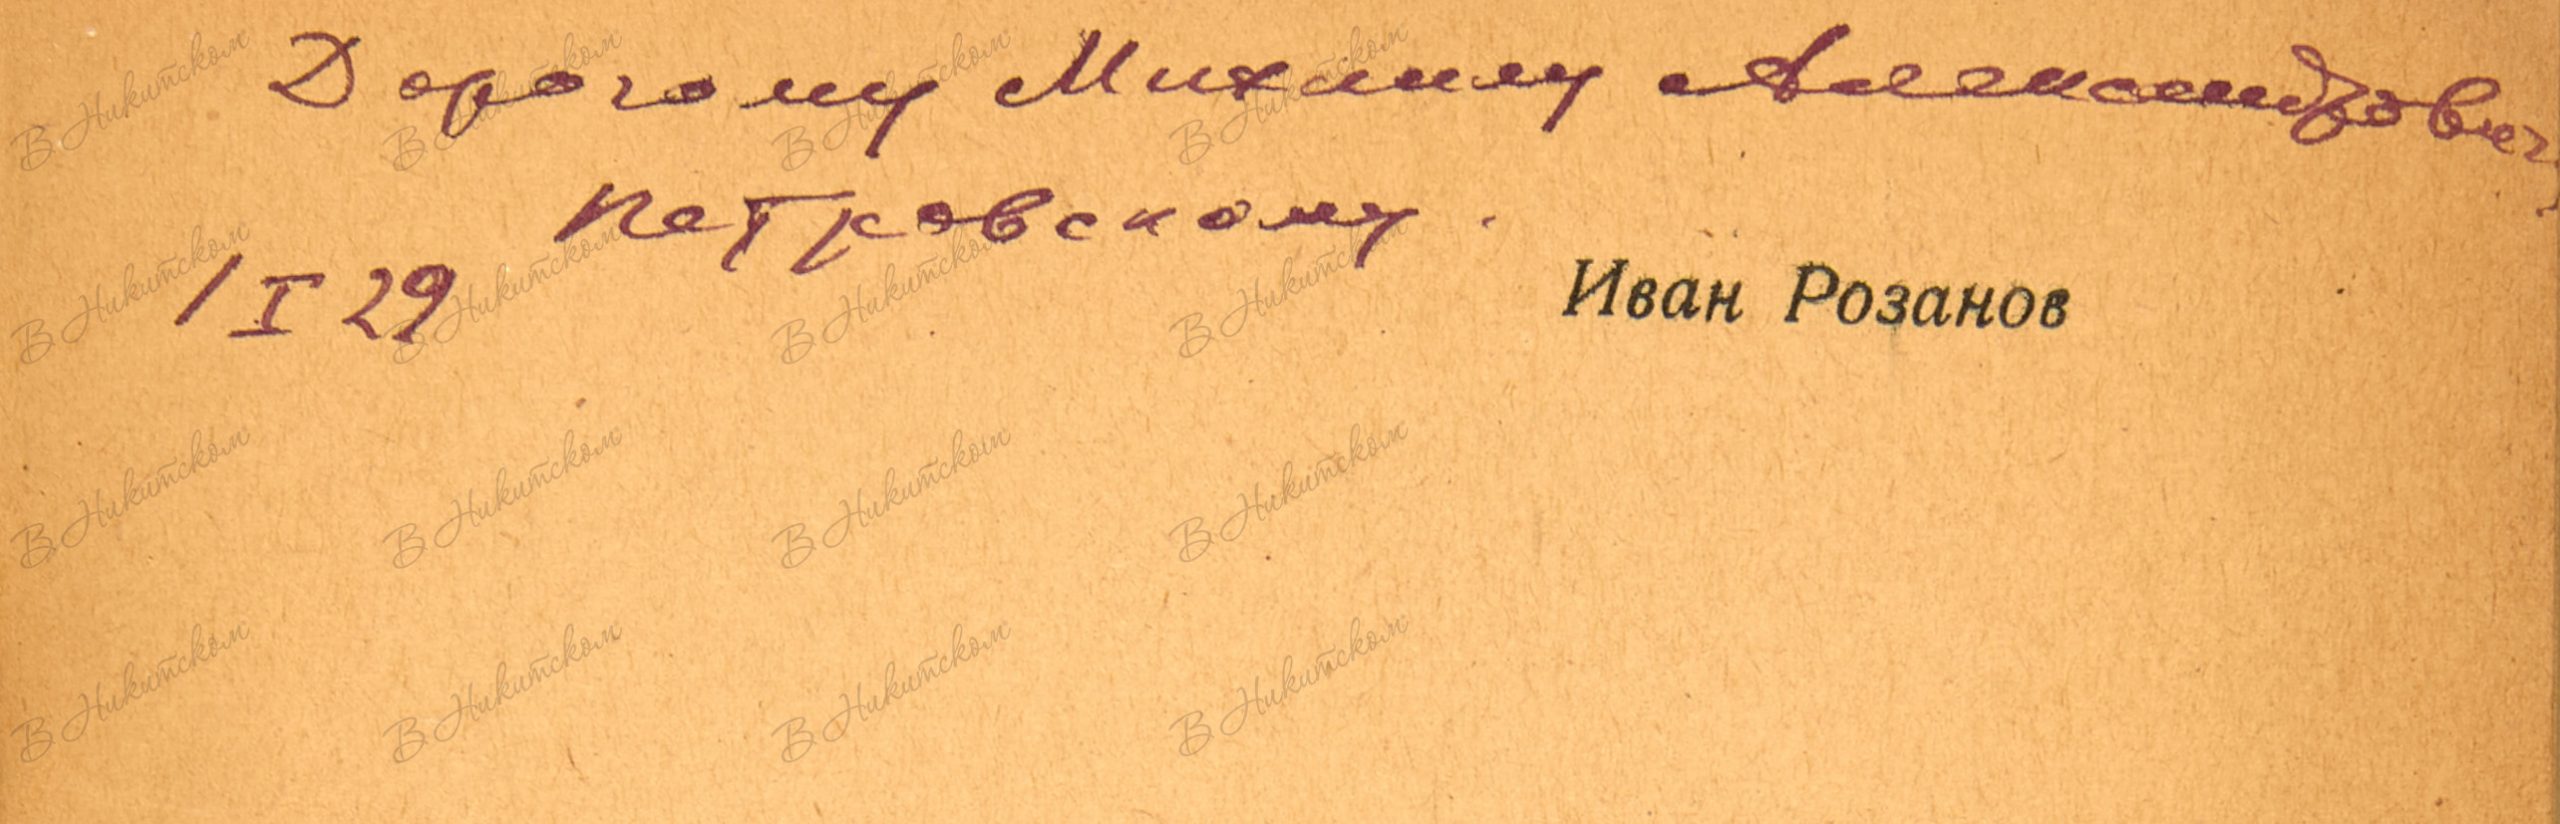 Дорогому Михаилу Александровичу
Петровскому.
1 I 29
Иван Розанов
В Никитском В Никитском В Никитском В Никитском
В Никитском В Никитском В Никитском В Никитском
В Никитском В Никитском В Никитском В Никитском
В Никитском В Никитском В Никитском В Никитском